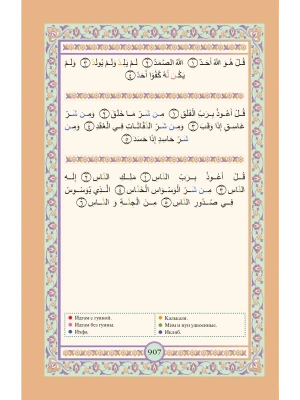 قُلْ هُوَ اللَّهُ أَحَدٌ ١ اللَّهُ الصَّمَدُ ٢ لَمْ يَلِدْ وَلَمْ يُولَدْ ٣ وَلَمْ
يَكُن لَّهُ كُفُوًا أَحَدٌ ٤
قُلْ أَعُوذُ بِرَبِّ الْفَلَقِ ١ مِن شَرِّ مَا خَلَقَ ٢ وَمِن شَرِّ
غَاسِقٍ إِذَا وَقَبَ ٣ وَمِن شَرِّ النَّفَّاثَاتِ فِي الْعُقَدِ ٤ وَمِن
شَرِّ حَاسِدٍ إِذَا حَسَدَ ٥
قُلْ أَعُوذُ بِرَبِّ النَّاسِ ١ مَلِكِ النَّاسِ ٢ إِلَهِ
النَّاسِ ٣ مِن شَرِّ الْوَسْوَاسِ الْخَنَّاسِ ٤ الَّذِي يُوَسْوِسُ
فِي صُدُورِ النَّاسِ ٥ مِنَ الْجِنَّةِ وَ النَّاسِ ٦
Идгам с гунной.
Идгам без гунны.
Ихфа.
Калькаля.
Мим и нун удвоенные.
Иклаб.
907